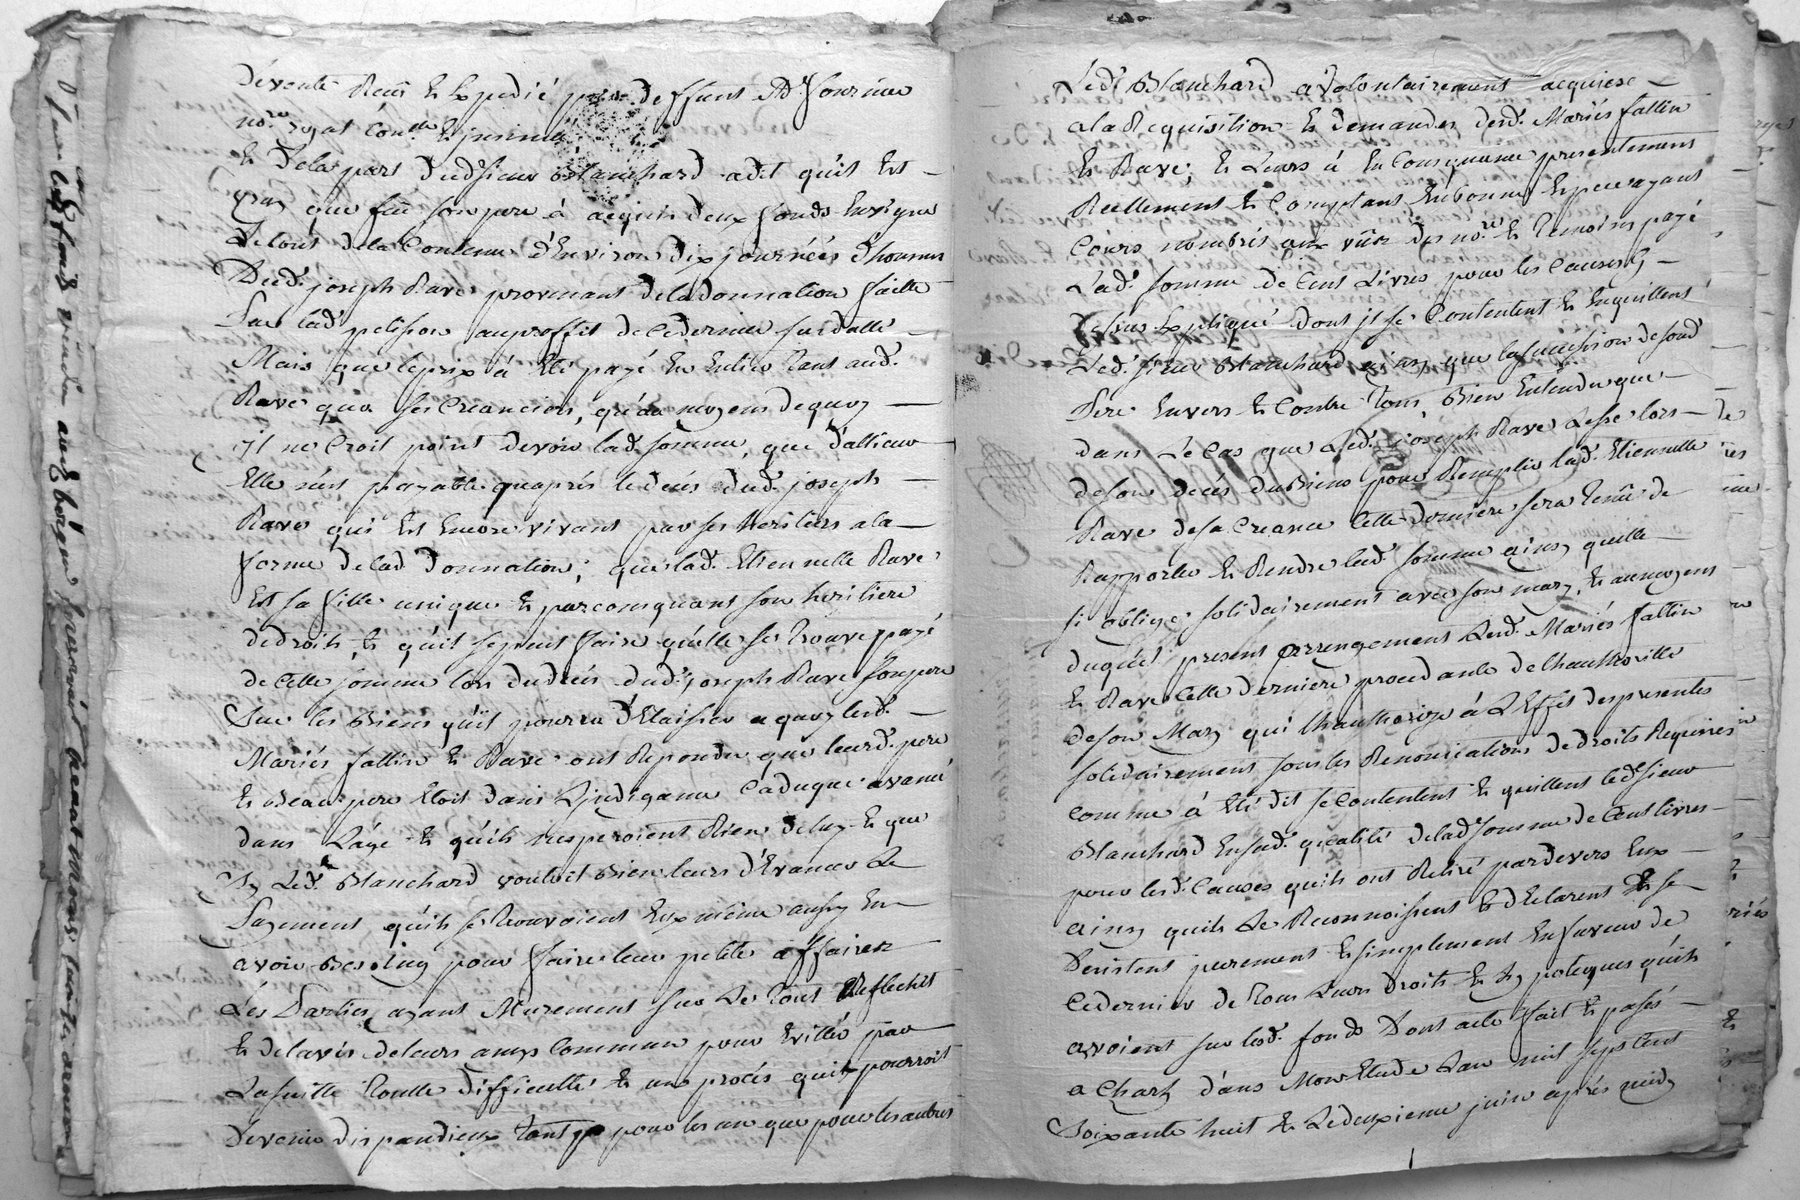 de vente Receu & Expedié par deffunt Me fournier
nore royal Contollé & insinué
& De la part Dud. Sieur Blanchard a dit quil Est
vray que feu son pere à acquis deux fonds En vigne
Le tout de la Contenue d'Environ dix journéés d'hommes
Dud. joseph Rave provenant de la donnation faitte
Par lad. pelisson au proffit de ce dernier susdatté
Mais que le prix à Eté payé En Entier tant aud.
Rave qua ses Creanciers, qu'au moyens de quoy
jl ne Croit point devoir lad. Somme, que d'allieur
Elle n'est payable quaprés le deces dud. joseph
Rave qui Est Encore vivant par ses heritiers a la
forme de lad. donnation; que lad. Etiennelle Rave
Est sa fille unique & par consequant son heritiere
de droits, & quil se peut faire quelle se trouve payé
de Cette somme lors du décés dud. joseph Rave Son pere
Sur les Biens quil pourra d'Elaisser a quoy lesd.
Mariés fallin & Rave ont Repondu que leurd. pere
& Beau pere Etoit dans Lindigance Caduque avancé
dans Läge & quils n'esperoient Rien de luy & que
Sy Led. Blanchard vouloit Bien leurs d'Evancer Le
Payement quils se trouvoient Eux méme aussy En
avoir Besoing pour faire leur petite affaires
Lés Parties ayant Murement sur Le tout Reflechit
& de lavis de leurs amys Commun pour Evitté par
La suitte toutte difficultté & un procés quil pourroit
devenir dispandieux tant pour les un que pour les autres
Led. Blanchard a volontairement acquiesé
a la Requisition & demandes desd. Mariés fallin
& Rave; & Leurs à En Consequance presentement
Reellement & Comptant En bonnes Especes ayant
Cours nombrés aux vües des nore. & Temoins payé
Lad. Somme de Cent Livres pour les Causes Cy
dessus Expliqué dont jl se Contentent & En quittent
Led. Sieur Blanchard ainsy que la succession de sond.
Pere Envers & Contre Tous, Bien Entendu que
dans Le Cas que Led. joseph Rave Lesse lors
de son decés du Biens pour Remplir lad. Etiennelle
Rave de sa Creance Cette derniere sera tenüe de
Rapporter & Rendre lad. somme ainsy quelle
si oblige solidairement avec son mary, & au moyens
duquel present arrengement Lesd. Mariés fallin
& Rave Cette derniere procedante de l'hautthorité
de son Mary qui l'hautthorize à L'Effet des presentes
solidairement sous les Renonciations de droits Requises
comme à Eté dit se Contentent & quittent led. Sieur
Blanchard En sad. qualité de lad. Somme de Cent livres
pour lesd. Causes quils ont Retiré pardevers Eux
ainsy quils Le Reconnoissent & d'Eclarent & se
Desistent purement & simplement En faveur de
Ce dernier de tous Leurs droits & hypoteques quils
avoient sur lesd. fonds Dont acte fait & passé
a Charly dans Mon Etude L'an mil sept Cent
Soixante huit & Le deuxieme juin aprés midy